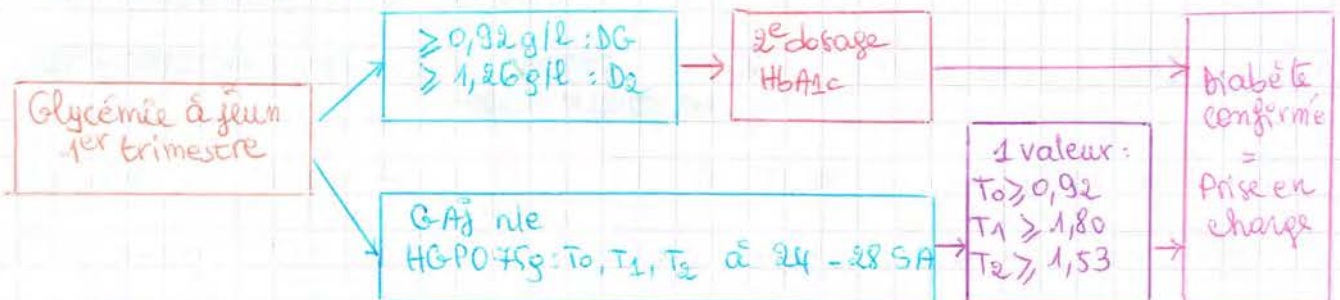 Glycémie à jeun
1er trimestre
≥ 0,92 g/l : DG
≥ 1,26 g/l : D2
2e dosage
HbA1c
GAJ nle
HGPO 75g : T0, T1, T2 à 24 - 28 SA
1 valeur :
T0 ≥ 0,92
T1 ≥ 1,80
T2 ≥ 1,53
Diabète
confirmé
=
Prise en
charge